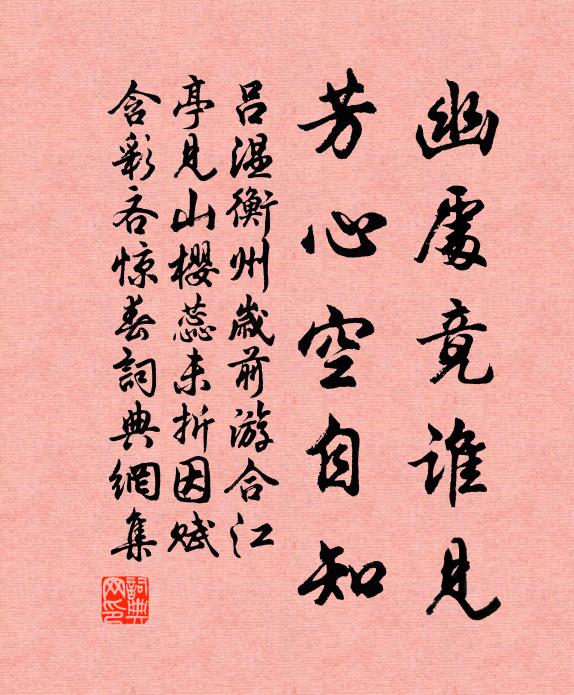 幽處竟誰見
芳心空自知
吕温衡州歲前游合江
亭見山櫻蕊未折因賦
含彩吝惊春詞典網集